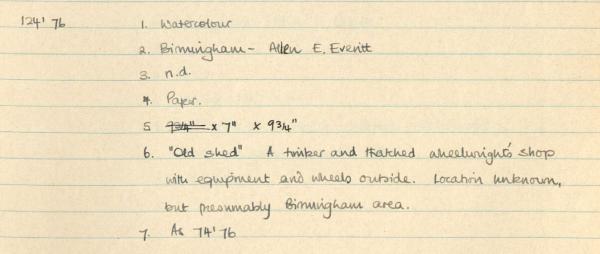 124'76 1. Watercolour
2. Birmingham - Allen E. Everitt
3. n.d.
4. Paper.
5 9¾" x 7" x 9¾"
6. "Old shed" A timber and thatched wheelwright's shop
with equipment and wheels outside. Location unknown,
but presumably Birmingham area.
7. As 74'76